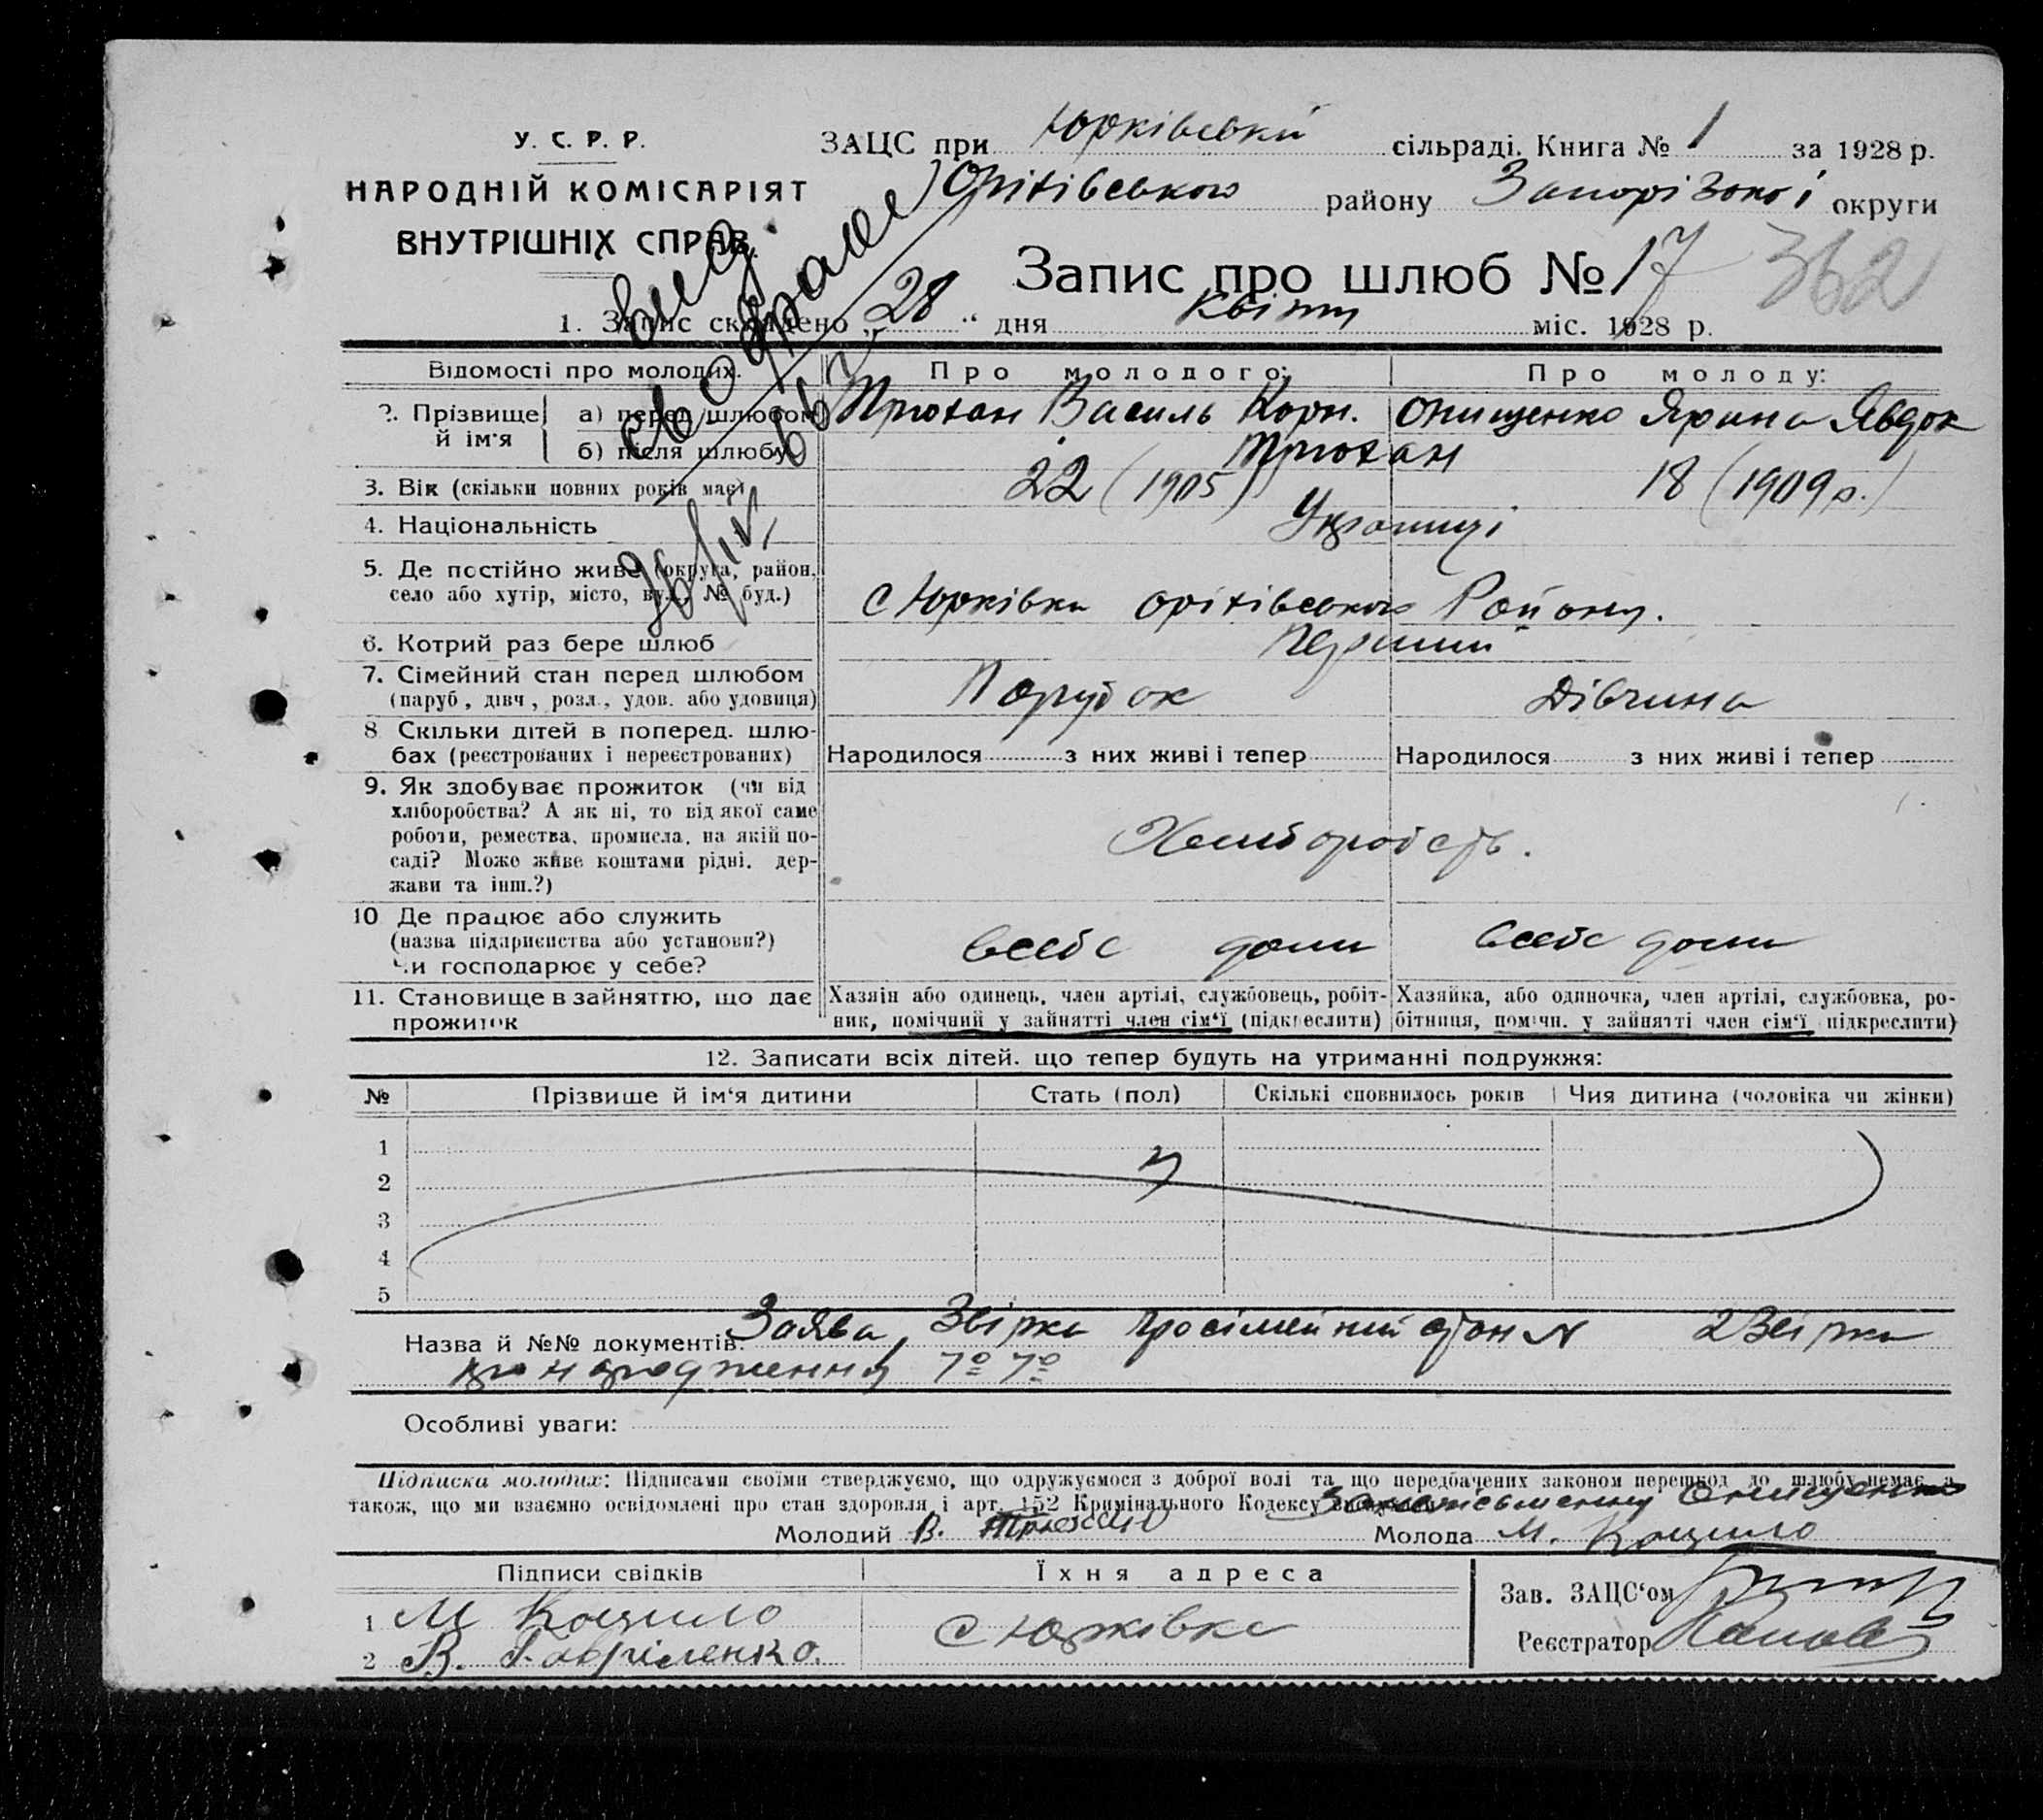 У. С. Р. Р.
НАРОДНІЙ КОМІСАРІЯТ
ВНУТРІШНІХ СПРАВ.
ЗАЦС при Юрківській сільраді. Книга № 1 за 1928 р.
Оріхівського району Запорізької округи
Запис про шлюб № 17 362
1. Запис складено „28“ дня квітня міс. 1928 р.
Відомості про молодих. Про молодого: Про молоду:
2. Прізвище й ім'я
а) перед шлюбом Трюхан Василь Корн. Онищенко Ярина Явдок
б) після шлюбу Трюхан
3. Вік (скільки повних років має) 22 (1905) 18 (1909 р.)
4. Національність Українці
5. Де постійно живе (округа, район,
село або хутір, місто, вул., № буд.) с Юрківка Оріхівського Району.
6. Котрий раз бере шлюб Перший
7. Сімейний стан перед шлюбом
(паруб, дівч, розл., удов. або удовиця) Парубок Дівчина
8 Скільки дітей в поперед. шлю-
бах (реєстрованих і нереєстрованих) Народилося з них живі і тепер Народилося з них живі і тепер
9. Як здобуває прожиток (чи від
хліборобства? А як ні, то від якої саме
роботи, ремества, промисла, на якій по-
саді? Може живе коштами рідні, дер-
жави та інш.?)
10 Де працює або служить
(назва підприємства або установи?)
Чи господарює у себе? всебе дома всебе дома
11. Становище в зайняттю, що дає
прожиток
Хазяїн або одинець, член артілі, службовець, робіт-
ник, помічний у зайнятті член сім'ї (підкреслити)
Хазяйка, або одиночка, член артілі, службовка, ро-
бітниця, помічн. у зайнятті член сім'ї підкреслити)
12. Записати всіх дітей, що тепер будуть на утриманні подружжя:
№ Прізвище й ім'я дитини Стать (пол) Скількі сповнилось років Чия дитина (чоловіка чи жінки)
1
2
3
4
5
Назва й №№ документів: Заява, Звірка просімейний стан № 2 Звірки
про народження
Особливі уваги:
Підписка молодих: Підписами своїми стверджуємо, що одружуємося з доброї волі та що передбачених законом перешкод до шлюбу немає, а
також, що ми взаємно освідомлені про стан здоровля і арт. 152 Кримінального Кодексу Онищенко
Молодий В. Трюхан Молода М. Коцило
Підписи свідків Їхня адреса
1 М Коцило с Юрківка
2 В. Гавріленко.
Зав. ЗАЦС'ом
Реєстратор